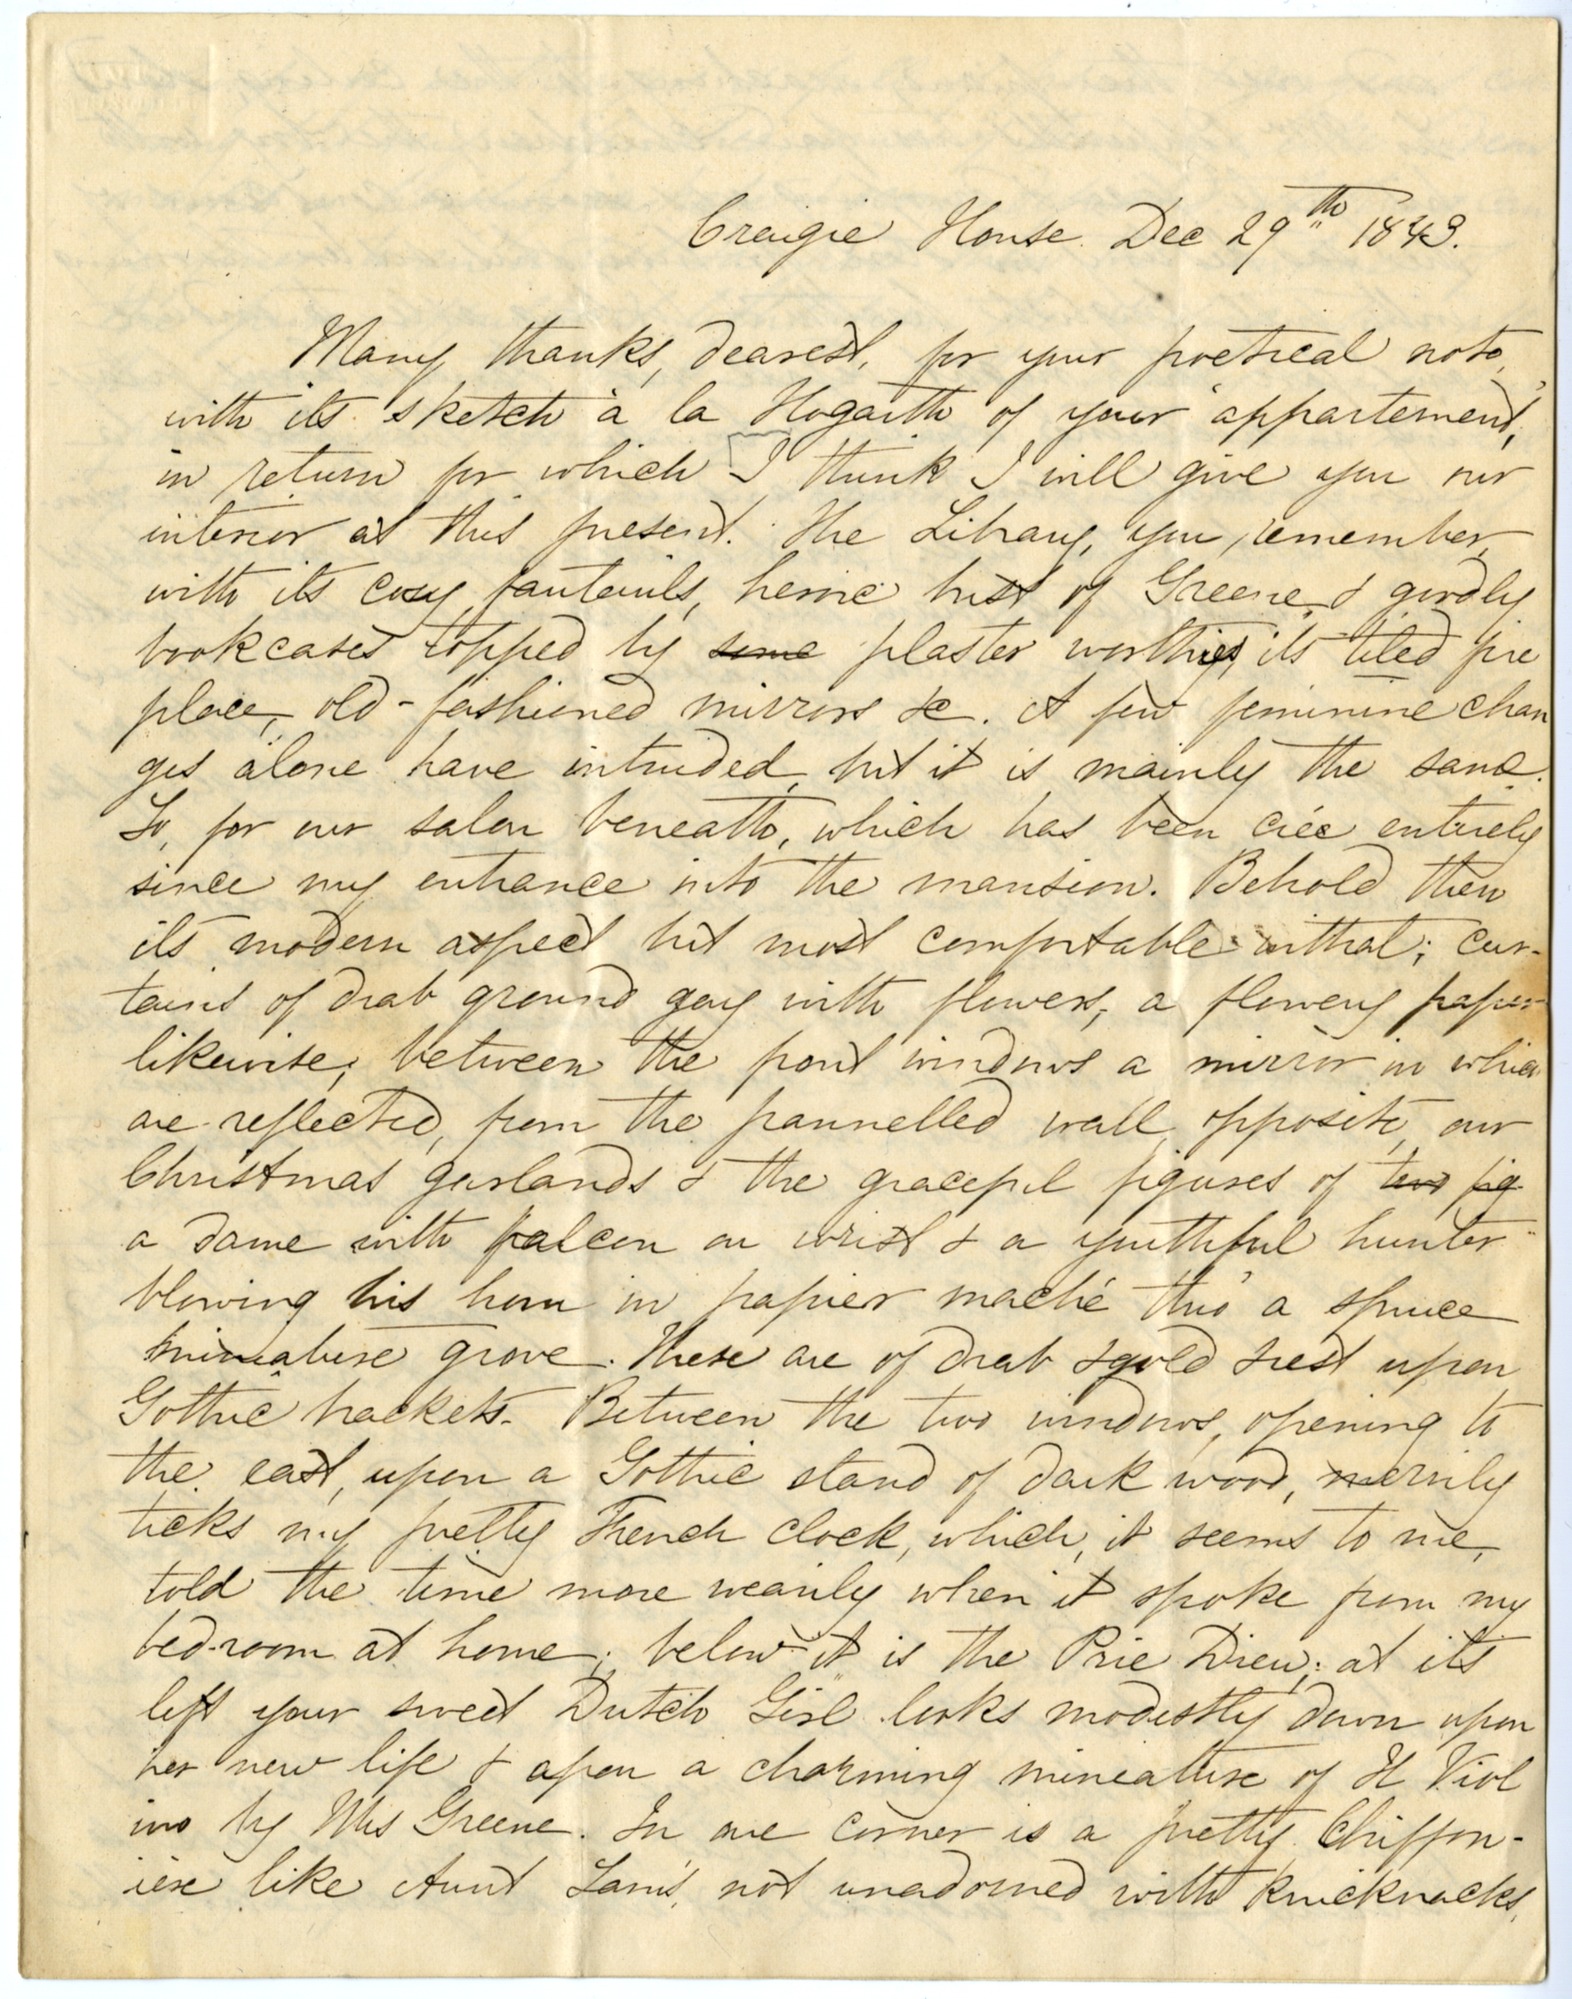 Craigie House. Dec 29th 1843.
Many thanks, dearest, for your poetical note,
with its sketch à la Hogarth of your "appartement",
in return for which I think I will give you our
interior at this present. The Library, you remember,
with its cosy fauteuils, heroic bust of Greene, & goodly
bookcases topped by some plaster worthies, its tiled fire
place, old-fashioned mirrors &c. A few feminine chan
ges alone have intruded, but it is mainly the same.
So, for our salon beneath, which has been crée entirely
since my entrance into the mansion. Behold then
its modern aspect but most comfortable withal; cur-
tains of drab ground gay with flowers, a flowery paper
likewise; between the front windows a mirror in which
are reflected, from the pannelled wall opposite, our
Christmas garlands & the graceful figures of two fig
a dame with falcon on wrist & a youthful hunter
blowing his horn in papier maché thro' a spruce
miniature grove. These are of drab & gold & rest upon
Gothic brackets. Between the two windows, opening to
the east, upon a Gothic stand of dark wood, merrily
ticks my pretty French clock, which, it seems to me,
told the time more wearily when it spoke from my
bed-room at home; below it is the Prie Dieu; at its
left your sweet Dutch Girl looks modestly down upon
her new life & upon a charming mineature of H Viol
ino by Mrs Greene. In one corner is a pretty Chiffon-
iere like Aunt Sam's, not unadorned with knicknacks,